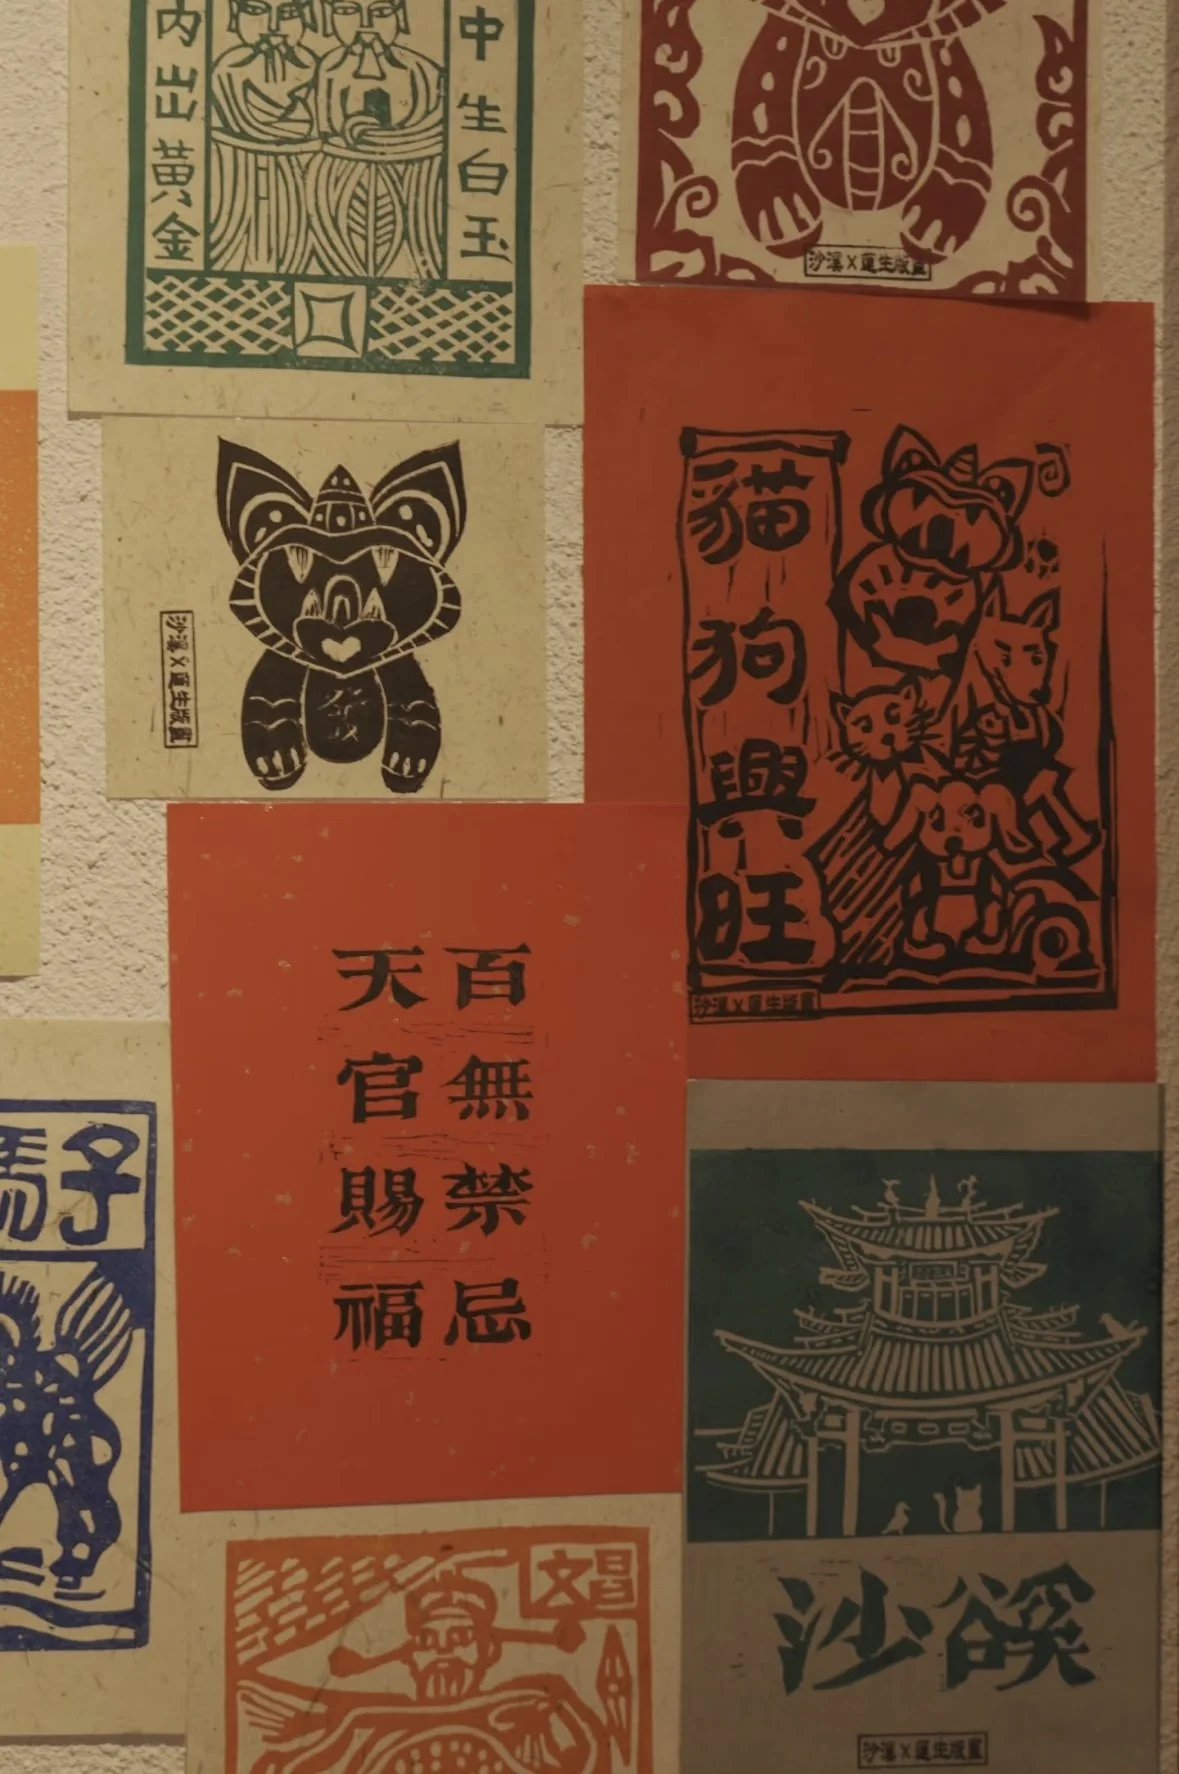 中生白玉
内出黃金
沙溪X匯生版畫
發
沙溪X匯生版畫
貓狗興旺
沙溪X匯生版畫
百無禁忌
天官賜福
子
文昌
沙谿
沙溪X匯生版畫